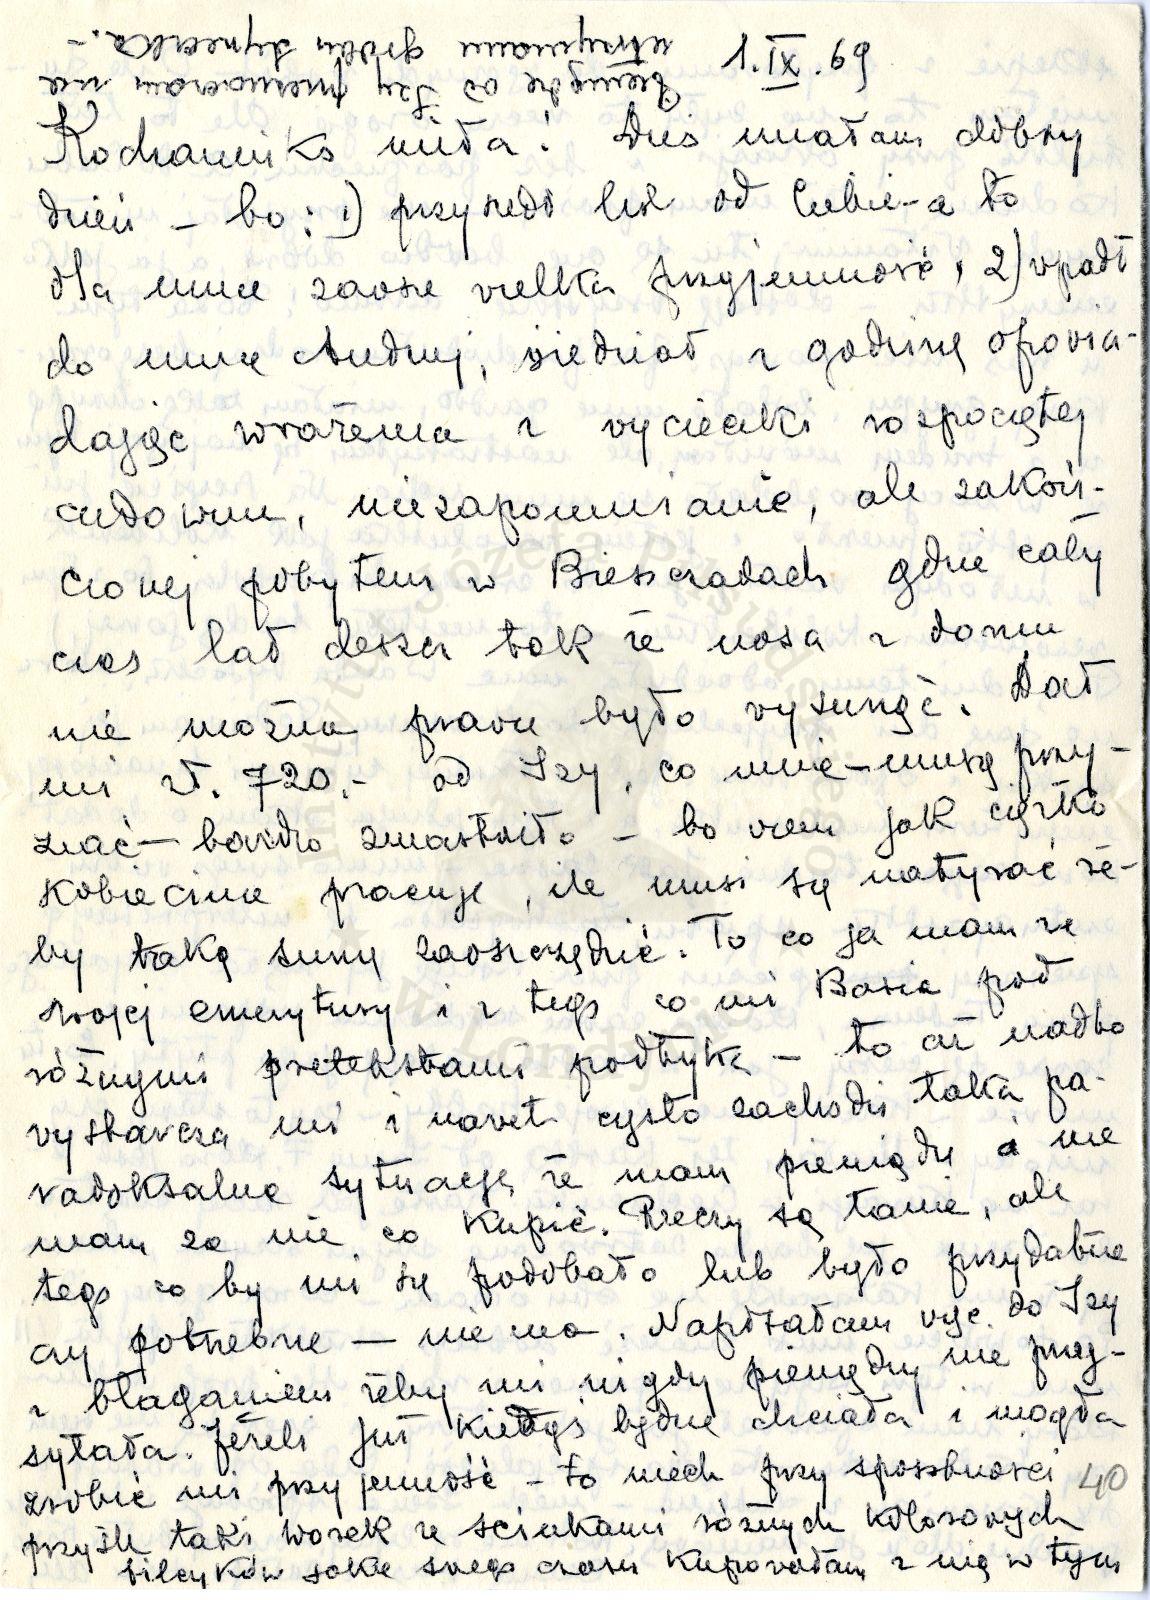 1.IX.69
Pieniądze od Izy przeznaczam na
utrzymanie grobu Dyneczka.-
Kochaneńka miła! Dziś miałam dobry
dzień - bo: 1) przyszedł list od Ciebie - a to
dla mnie zawsze wielka przyjemność, 2) wpadł
do mnie Andrzej, siedział z godzinę opowia-
dając wrażenia z wycieczki rozpoczętej
cudownie, niezapomnianie, ale zakoń-
czonej pobytem w Bieszczadach gdzie cały
czas lał deszcz tak że nosa z domu
nie można prawie było wysunąć. Dał
mi zł. 720.- od Izy, co mnie - muszę przy-
znać - bardzo zmartwiło - bo wiem jak ciężko
kobiecina pracuje, ile musi się natyrać że-
by taką sumę zaoszczędzić. To co ja mam ze
swojej emerytury i z tego co mi Basia pod
różnymi pretekstami podtyka - to aż nadto
wystarcza mi i nawet często zachodzi taka pa-
radoksalna sytuacja, że mam pieniądze a nie
mam za nie co kupić. Rzeczy są tanie, ale
tego co by mi się podobało lub było przydatne
czy potrzebne - nie ma. Napisałam więc do Izy
z błaganiem żeby mi nigdy pieniędzy nie przy-
syłała. Jeżeli już kiedyś będzie chciała i mogła
zrobić mi przyjemność - to niech przy sposobności
przyśle taki worek ze ścinkami różnych kolorowych
silcyków jakie swego czasu kupowałam z nią w tym
40
Instytut Józefa Piłsudskiego
w Londynie